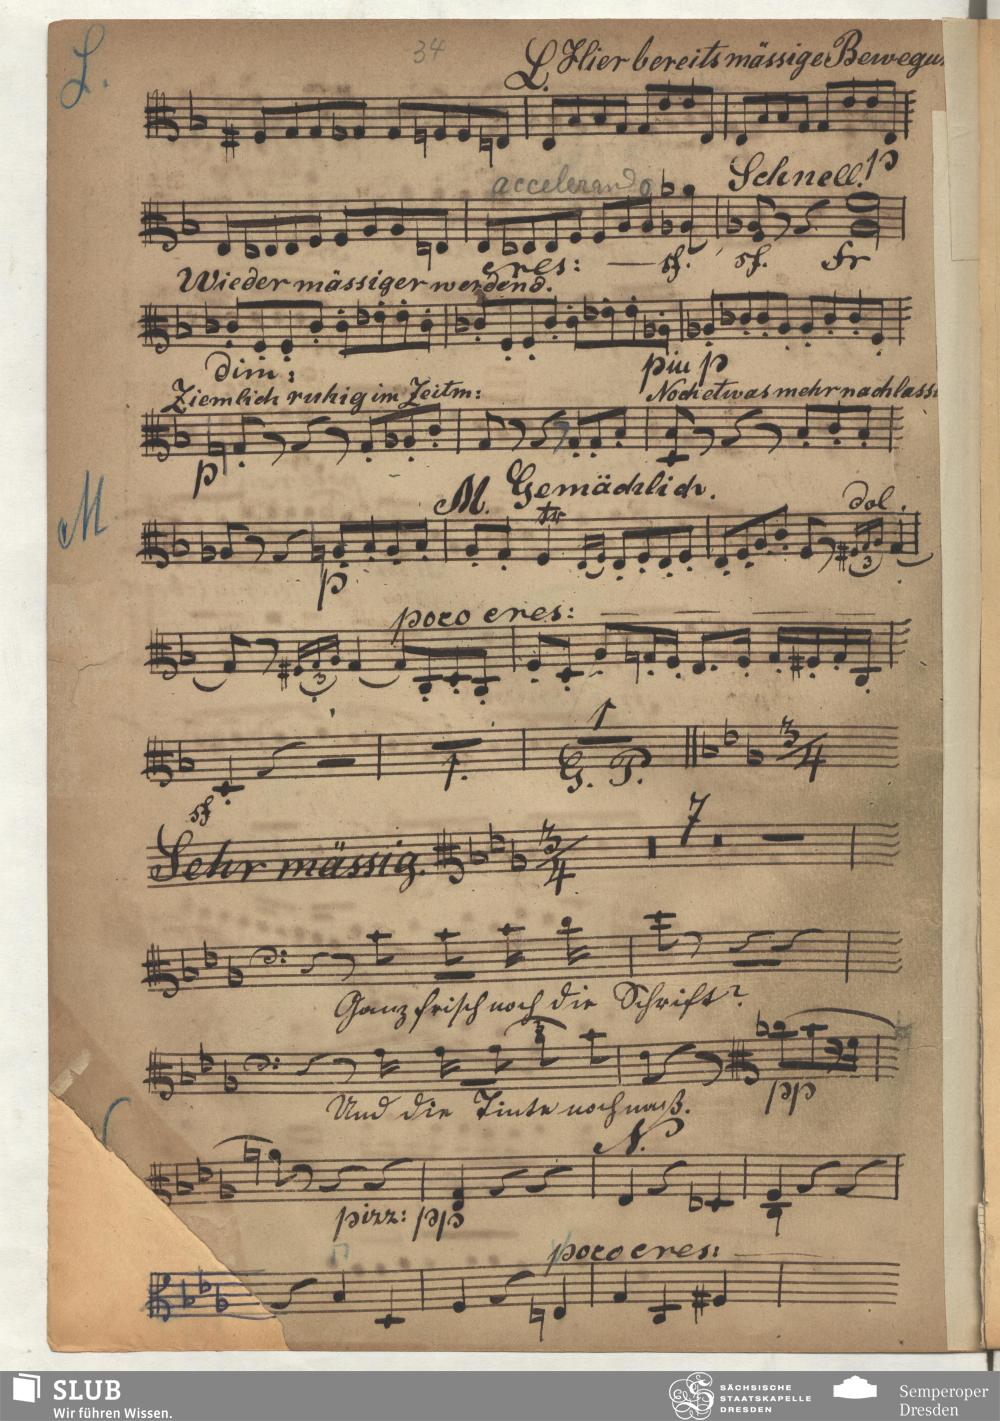 L.
34
L. Hier bereits mässige Bewegu
accelerando
Schnell. p
cres: sf. sf. fr
Wieder mässiger werdend.
dim: piu p
Ziemlich ruhig im Zeitm: Noch etwas mehr nachlass
p
M
M. Gemächlich. dol.
tr
p 3
poco cres:
3
1. 1
G. P. 3/4
sf
Sehr mässig. 3/4 7
Ganz frisch noch die Schrift?
Und die Tinte noch naß. pp
N.
pizz: pp
poco cres:
SLUB
Wir führen Wissen.
SÄCHSISCHE
STAATSKAPELLE
DRESDEN
Semperoper
Dresden